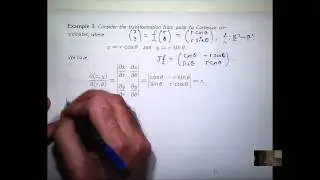 Example 3 Consider the transformation from polar to Cartesian co-
ordinates, where (x y) = f(r θ) = (r cosθ r sinθ), f: ℝ²→ℝ².
x = r cos θ and y = r sin θ.
We have Jf = (cosθ -r sinθ sinθ r cosθ)
∂(x,y)/∂(r,θ) = |∂x/∂r ∂x/∂θ ∂y/∂r ∂y/∂θ| = |cos θ -r sin θ sin θ r cos θ| = r.